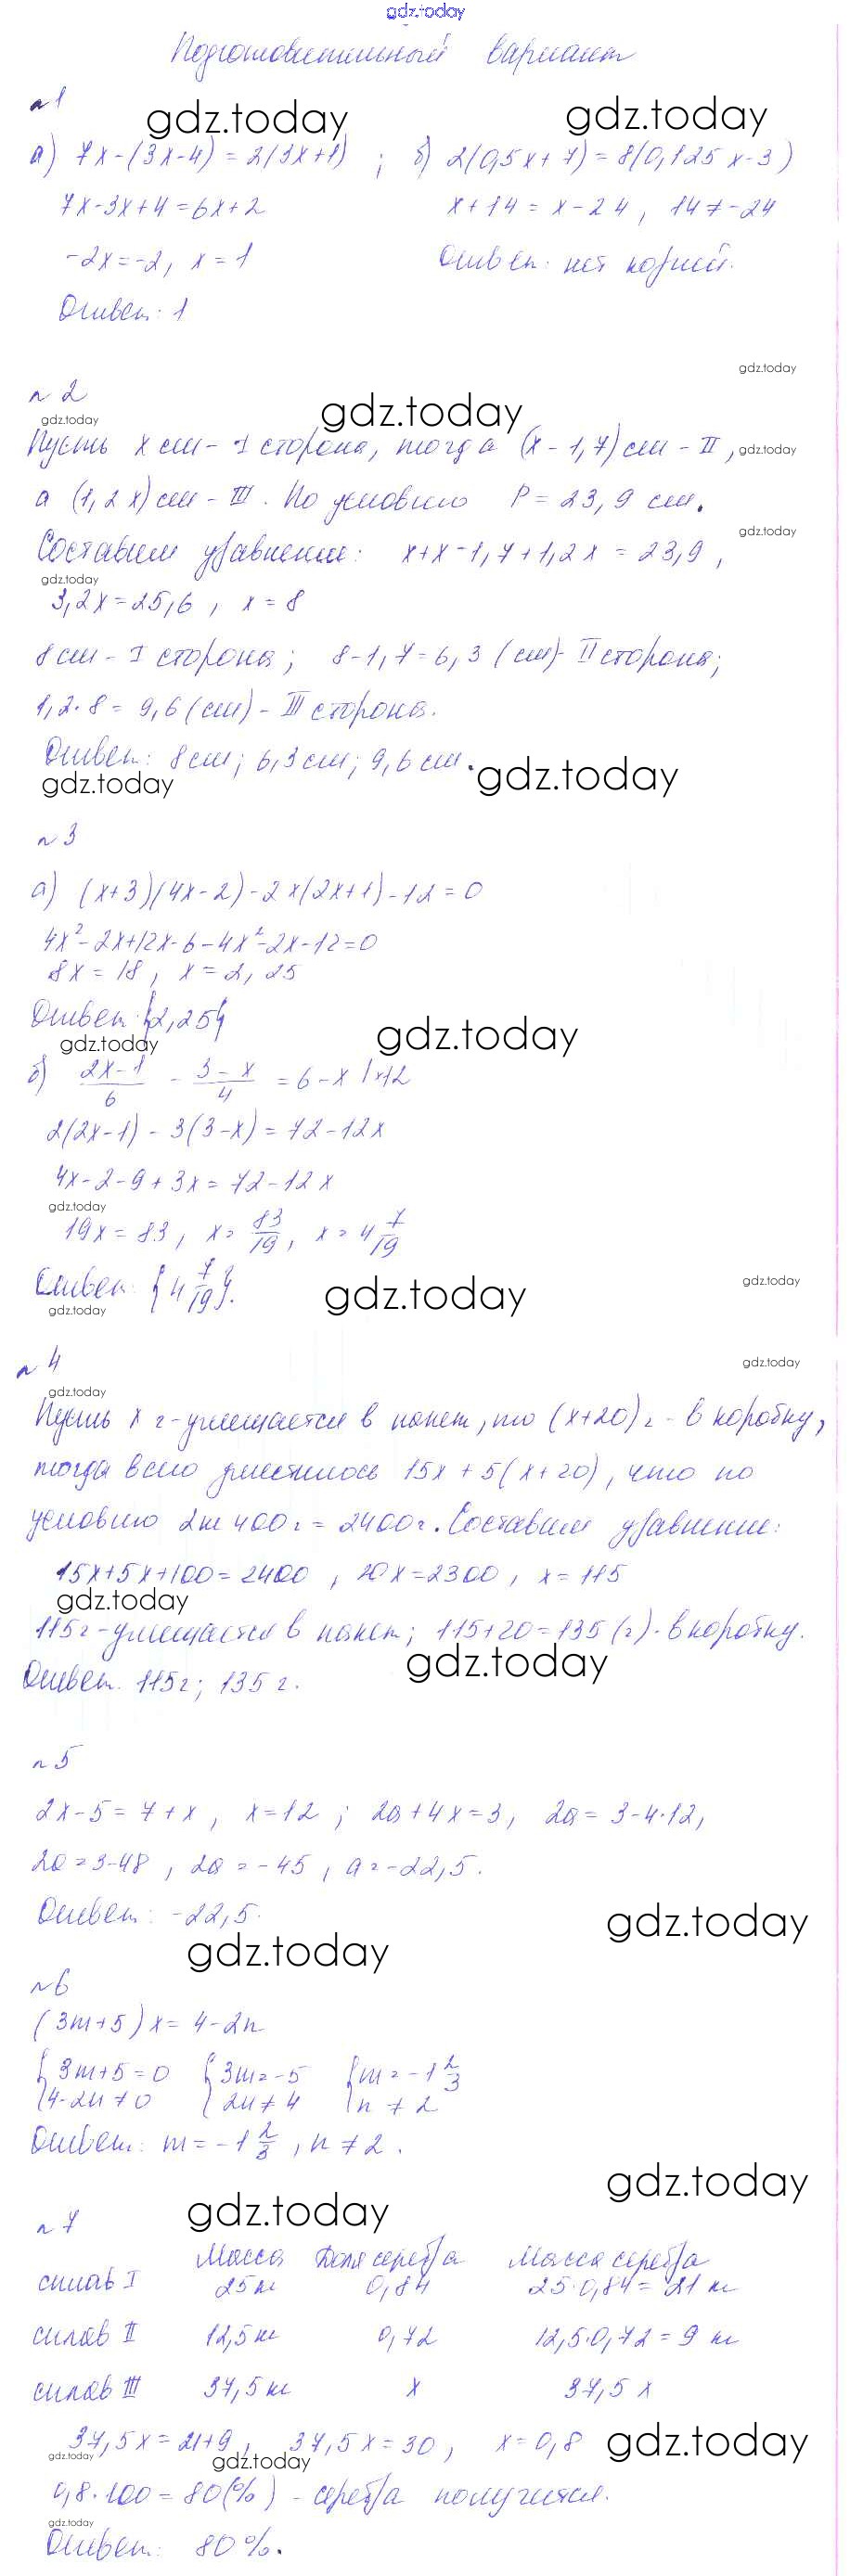 gdz.today
Подготовительный вариант
№1
gdz.today gdz.today
а) 7x-(3x-4) = 2(3x+1) ; б) 2(0,5x+7) = 8(0,125x-3)
7x-3x+4=6x+2 x+14 = x-24, 14≠-24
-2x=-2, x=1 Ответ: нет корней.
Ответ: 1
gdz.today
№2
gdz.today
gdz.today
Пусть x см - I сторона, тогда (x-1,7) см - II, gdz.today
а (1,2x) см - III. По условию P = 23,9 см.
gdz.today
Составим уравнение: x+x-1,7+1,2x = 23,9,
gdz.today
3,2x=25,6, x=8
8 см - I сторона; 8-1,7=6,3 (см) II сторона;
1,2·8 = 9,6 (см) - III сторона.
Ответ: 8 см; 6,3 см; 9,6 см.
gdz.today gdz.today
№3
а) (x+3)(4x-2)-2x(2x+1)-12=0
4x²-2x+12x-6-4x²-2x-12=0
8x = 18, x=2,25
Ответ {2,25}
gdz.today gdz.today
б) (2x-1)/6 - (3-x)/4 = 6-x |×12
2(2x-1) - 3(3-x) = 72-12x
4x-2-9+3x=72-12x
gdz.today
19x=83, x=83/19, x=4 7/19
Ответ: {4 7/19}.
gdz.today gdz.today gdz.today
№4
gdz.today
gdz.today
Пусть x г-умещается в пакет, то (x+20) г - в коробку,
тогда всего уместилось 15x+5(x+20), что по
условию 2кг 400г = 2400г. Составим уравнение:
15x+5x+100=2400, 20x=2300, x=115
gdz.today
115г-умещается в пакет; 115+20=135 (г) - в коробку.
gdz.today
Ответ. 115г; 135г.
№5
2x-5=7+x, x=12; 2a+4x=3, 2a=3-4·12,
2a=3-48, 2a=-45, a=-22,5.
Ответ: -22,5.
gdz.today
gdz.today
№6
(3m+5)x = 4-2n
{3m+5=0 {3m=-5 {m=-1 2/3
{4-2n≠0 {2n≠4 {n≠2
Ответ: m=-1 2/3, n≠2.
gdz.today
gdz.today
№7
Масса Доля серебра Масса серебра
сплав I 25кг 0,84 25·0,84=21 кг
сплав II 12,5кг 0,72 12,5·0,72=9 кг
сплав III 37,5кг x 37,5x
37,5x=21+9, 37,5x=30, x=0,8 gdz.today
gdz.today gdz.today
0,8·100=80(%) - серебра получится.
gdz.today
Ответ: 80%.